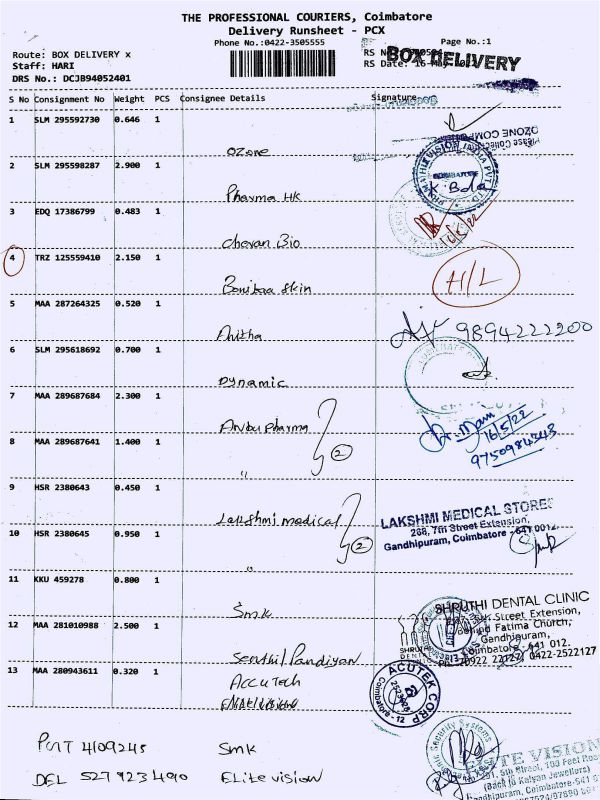 THE PROFESSIONAL COURIERS, Coimbatore
Delivery Runsheet - PCX
Phone No.:0422-3505555
Page No.:1
Route: BOX DELIVERY x
Staff: HARI
DRS No.: DCJB94052401
RS No
RS Date: 16-May
BOX DELIVERY
S No Consignment No Weight PCS Consignee Details Signature
1 SLM 295592730 0.646 1
Ozone
OZONE COMP
Please Collect
2 SLM 295598287 2.900 1
Pharma HK
COIMBATORE
3 EDQ 17386799 0.483 1
16/5/22
Chevan Bio
4 TRZ 125559410 2.150 1
H/L
Skin
5 MAA 287264325 0.520 1
Anitha
9894222200
6 SLM 295618692 0.700 1
Dynamic
7 MAA 289687684 2.300 1
Anbu pharma
16/5/22
9750984343
8 MAA 289687641 1.400 1
"
2
9 HSR 2380643 0.450 1
Lakshmi medical
LAKSHMI MEDICAL STORES
268, 7th Street Extension,
Gandhipuram, Coimbatore - 641 012.
10 HSR 2380645 0.950 1
"
2
11 KKU 459278 0.800 1
Smk
SHRUTHI DENTAL CLINIC
Street Extension,
Behind Fatima Church,
Gandhipuram,
Coimbatore - 641 012.
0422-2522127
12 MAA 281010988 2.500 1
Senthil Pandiyan
13 MAA 280943611 0.320 1
Accu Tech
ACUTEK CORP
Coimbatore - 12
PNT 4109245 Smk
DEL 527923490 Elite vision
Security Systems
ELITE VISION
5th Street, 100 Feet Road
(Back to Kalyan Jewellers)
Gandhipuram, Coimbatore-641